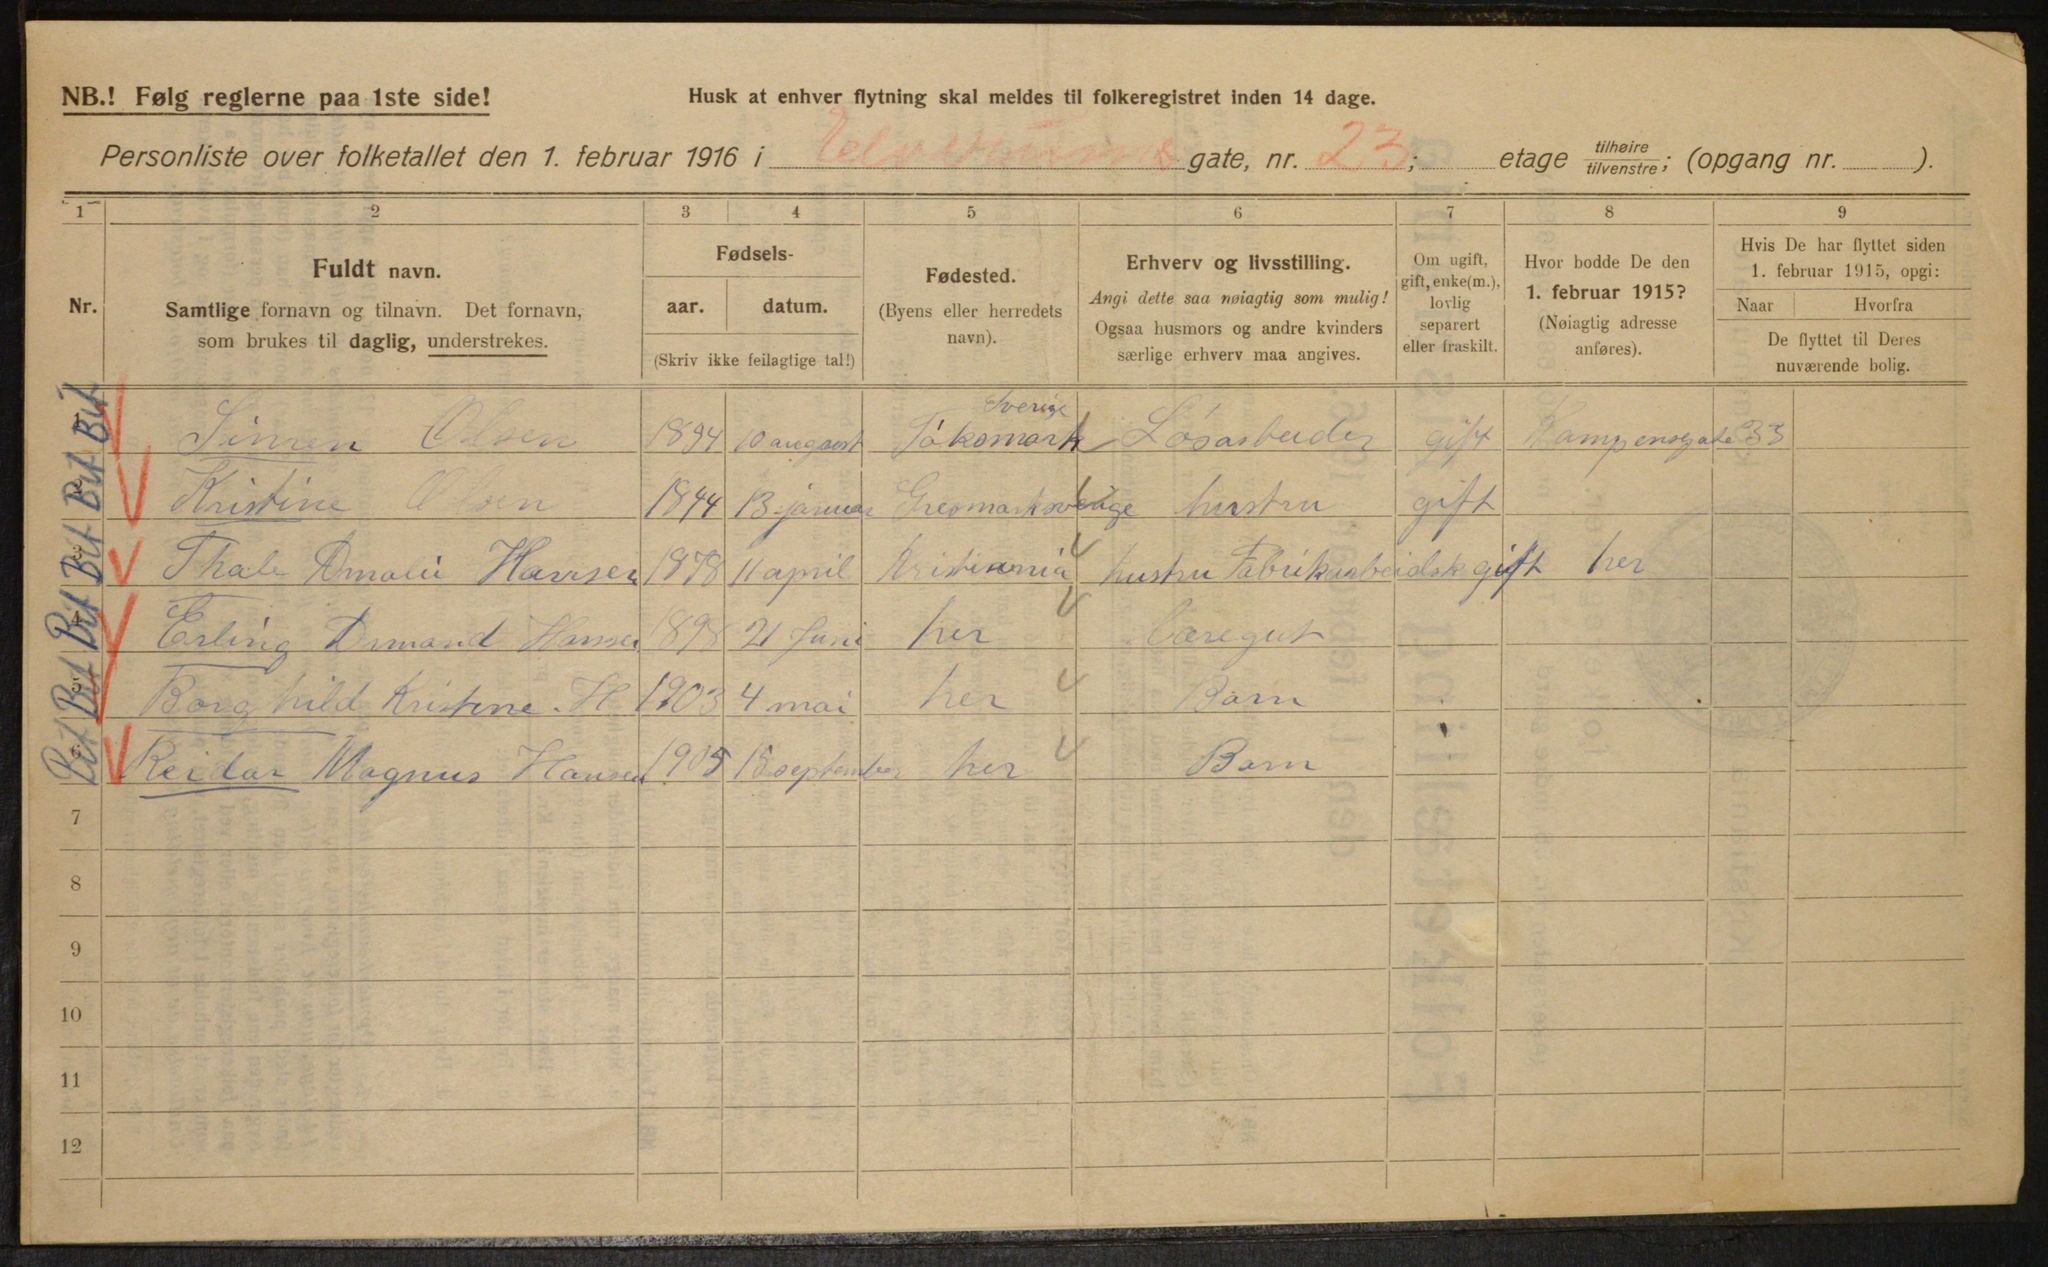 NB.! Følg reglerne paa 1ste side!
Husk at enhver flytning skal meldes til folkeregistret inden 14 dage.
Personliste over folketallet den 1. februar 1916 i gate, nr. 23; etage tilhøire/tilvenstre; (opgang nr. ).
1 2 3 4 5 6 7 8 9
Nr.
Fuldt navn.
Samtlige fornavn og tilnavn. Det fornavn,
som brukes til daglig, understrekes.
Fødsels-
aar. datum.
(Skriv ikke feilagtige tal!)
Fødested.
(Byens eller herredets
navn).
Erhverv og livsstilling.
Angi dette saa nøiagtig som mulig!
Ogsaa husmors og andre kvinders
særlige erhverv maa angives.
Om ugift,
gift, enke(m.),
lovlig
separert
eller fraskilt.
Hvor bodde De den
1. februar 1915?
(Nøiagtig adresse
anføres).
Hvis De har flyttet siden
1. februar 1915, opgi:
Naar Hvorfra
De flyttet til Deres
nuværende bolig.
Sverige
Simen Olsen 1894 10 august Tøksmark Løsarbeider gift Kampensgate 33
Kristine Olsen 1844 13 januar sverige hustru gift
Thale Amalie Hansen 1878 11 april Kristiania hustru Fabrikarbeidsk gift her
Erling Armand Hansen 1898 21 Juni her Læregut
Borghild Kristine H 1903 4 mai her Barn
Reidar Magnus Hansen 1905 15 september her Barn
7
8
9
10
11
12